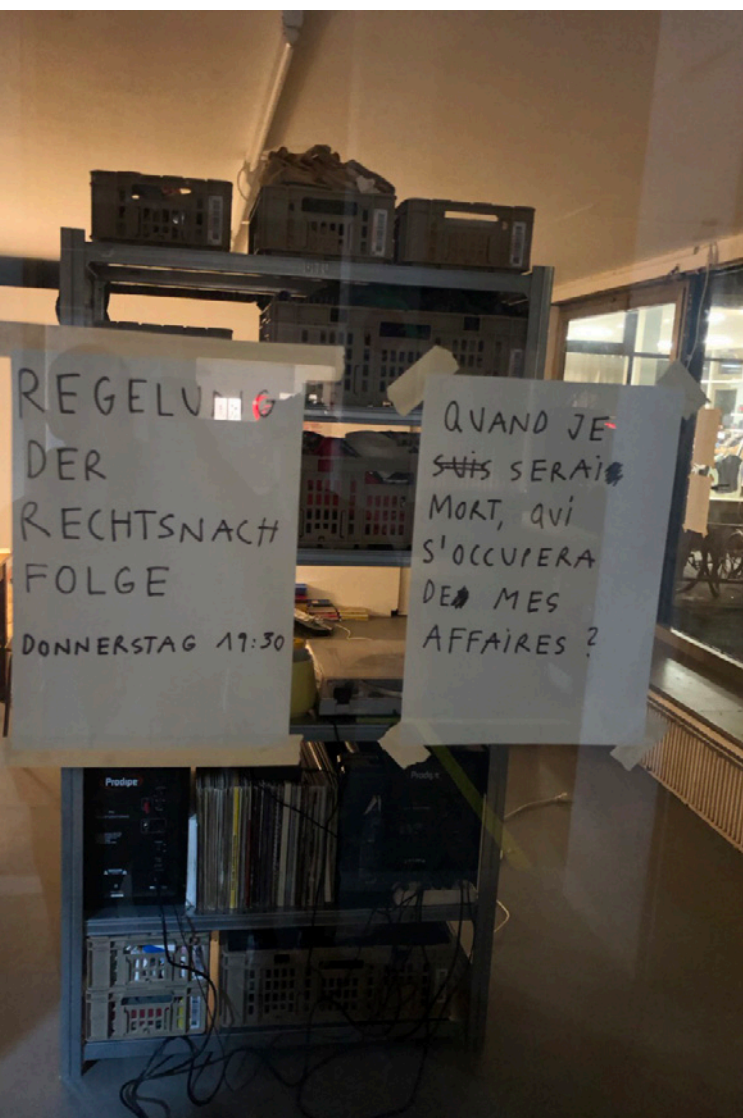 REGELUNG
DER
RECHTSNACH
FOLGE
DONNERSTAG 19:30
QUAND JE
suis SERAI
MORT, QUI
S'OCCUPERA
DE MES
AFFAIRES ?
Prodipe
Prodipe